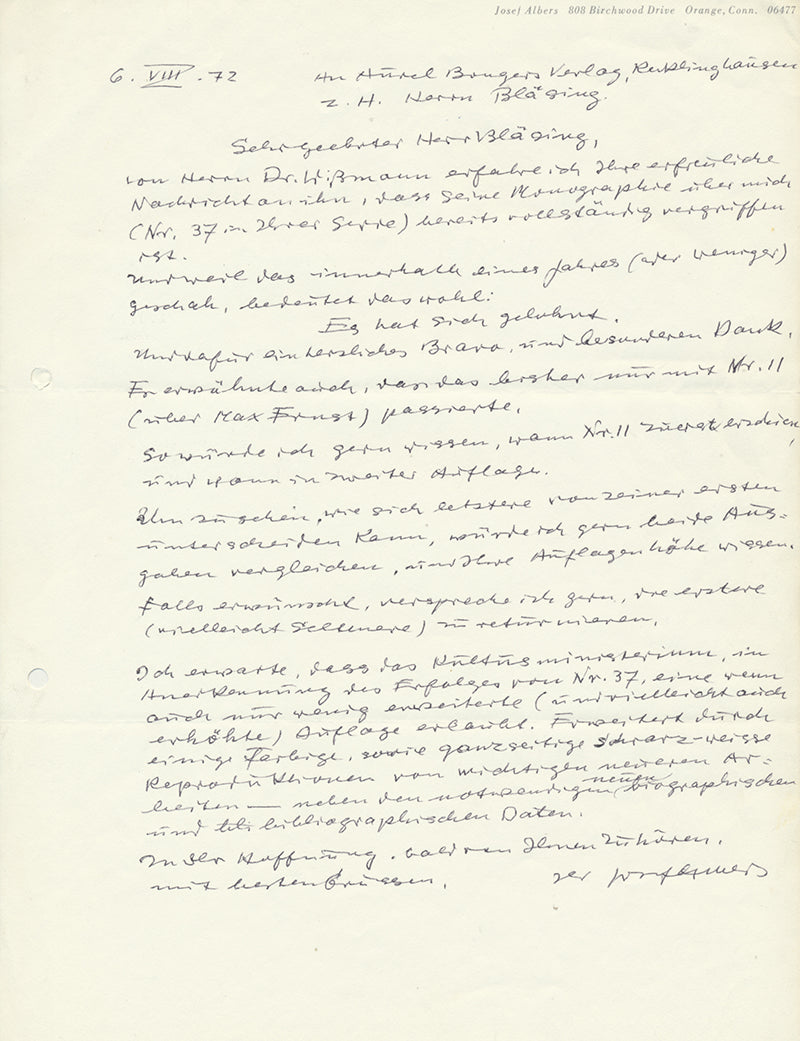 Josef Albers 808 Birchwood Drive Orange, Conn. 06477
6. VIII. 72 An Aurel Bongers Verlag, Recklinghausen
z. H. Herrn Bläsing.
Sehr geehrter Herr Bläsing,
von Herrn Dr. Wißmann erfahre ich Ihre erfreuliche
Nachricht an ihn, dass seine Monographie über mich
(Nr. 37 in Ihrer Serie) bereits vollständig vergriffen
ist.
Und weil das innerhalb eines Jahres (oder weniger)
geschah, bedeutet das wohl:
Es hat sich gelohnt.
Und dafür ein herzliches Bravo, und besonderen Dank.
Er erwähnte auch, dass das bisher nur mit Nr. 11
(über Max Ernst) passierte.
So würde ich gern wissen, wann Nr. 11 zuerst erschien,
und wann in zweiter Auflage.
Um zu sehen, wie sich letztere von einer ersten
unterscheiden kann, würde ich gern beide Aus-
gaben vergleichen, und Ihre Auflagenhöhe wissen.
Falls erwünscht, verspreche ich gern, die erstere
(vielleicht seltenere) zu returnieren.
Ich erwarte, dass das Kultusministerium, in
Anerkennung des Erfolges von Nr. 37, eine wenn
auch nur wenig erweiterte (und vielleicht auch
erhöhte) Auflage erlaubt. Erweitert durch
einige farbige, sowie ganzseitige schwarz-weisse
Reproduktionen von wichtigen neueren Ar-
beiten — neben den notwendigen neuen biographischen
und bibliographischen Daten.
In der Hoffnung, bald von Ihnen zu hören,
mit besten Grüssen, Ihr Josef Albers